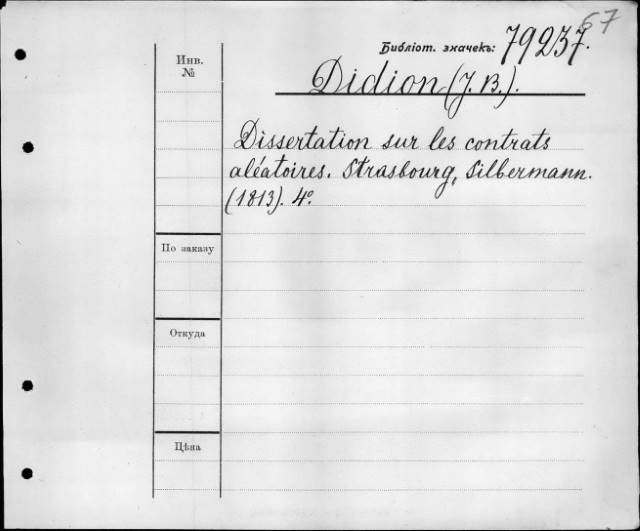 67
Библіот. значекъ: 79237.
Инв.
№
Didion (J. B.).
Dissertation sur les contrats
aléatoires. Strasbourg, Silbermann.
(1813). 4°.
По заказу
Откуда
Цѣна